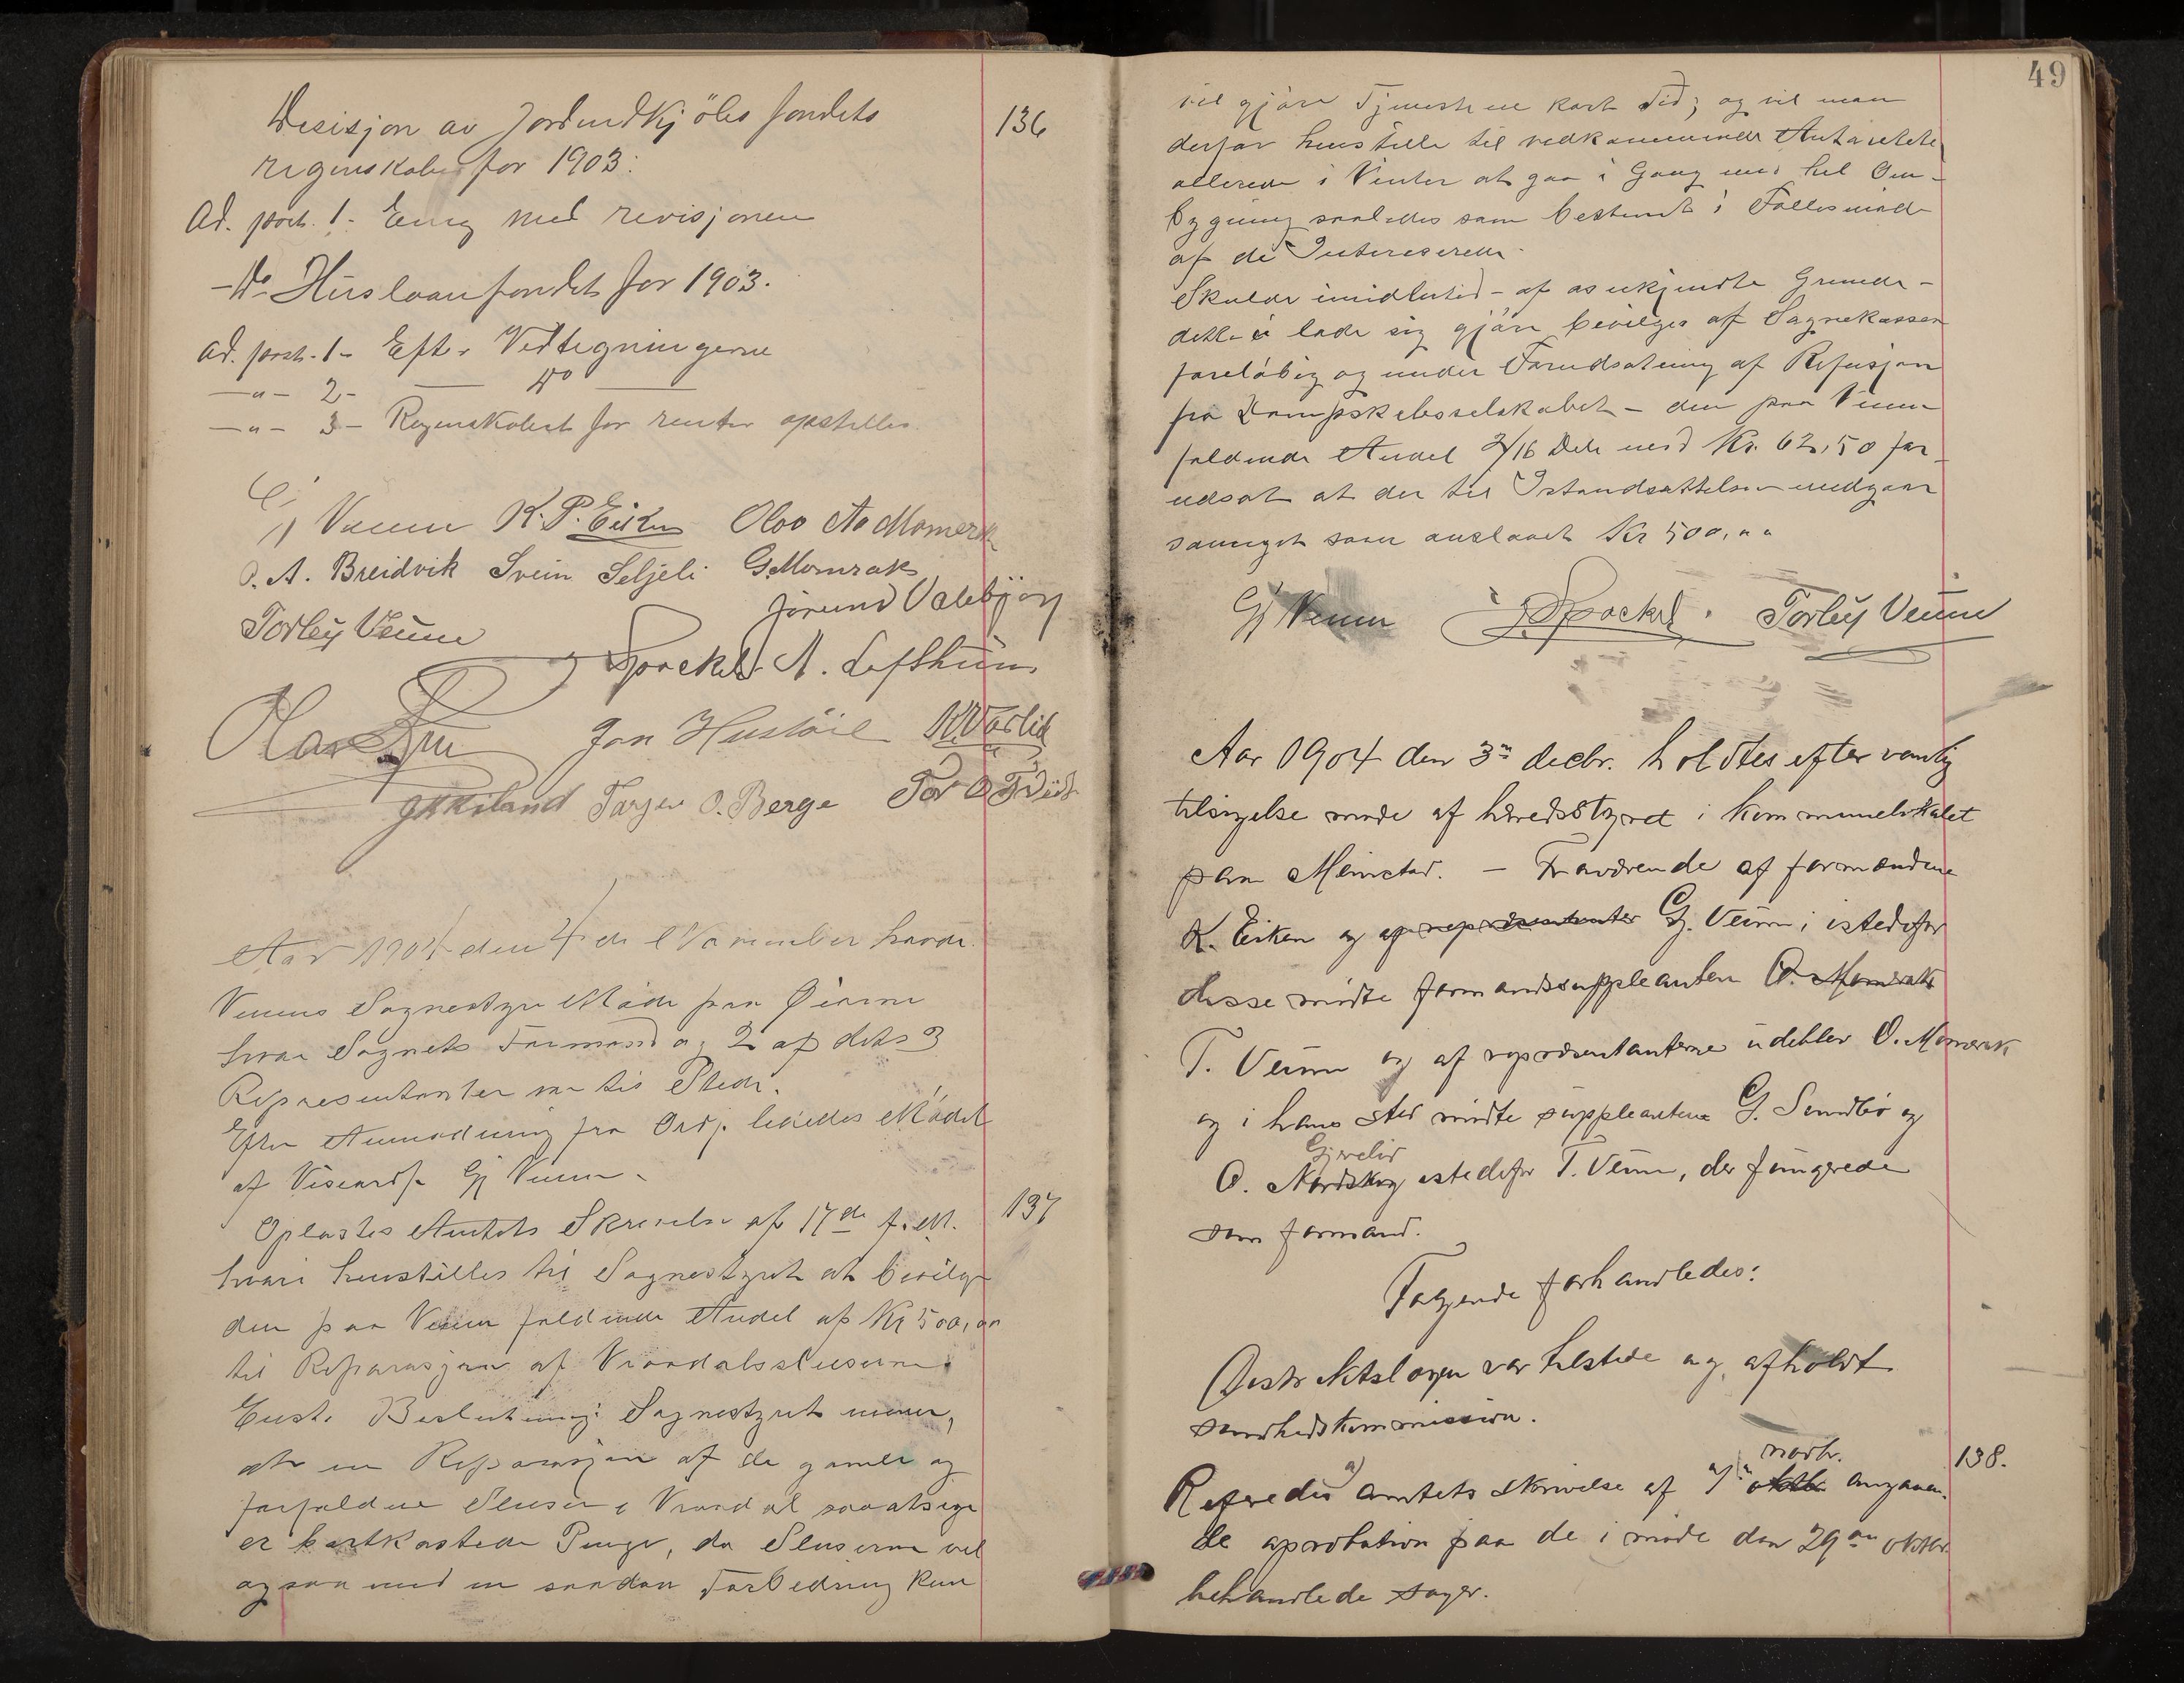 136
Desisjon av Jordindkjöbsfondets
regnskaber for 1903:
Ad. post. 1 - Enig med revisjonen
- Do Huslaanfondets for 1903.
Ad. post. 1 - Efter Vedtegningerne
—„— 2 - — Do —
—„— 3 - Regnskabet for renter opstilles
Gj Veum K. P. Eiken Olav Aa Momrak
O. A. Breidvik Svein Seljeli G. Momrak
Jørund Valebjørg
Torleif Veum
A. Lofthuus
Jon Hustøil K Vaslid
Tarjei O. Berge
Aar 1904 den 4de November havde
Veums Sognestyre Møde paa Øirum
hvor Sognets Formand og 2 af dets 3
Repræsentanter var til Stede.
Efter Anmodning fra Ordf. lededes Mødet
af Viseordf. Gj Veum.
137
Oplæstes Amtets Skrivelse af 17de f. M.
hvori henstilles til Sognestyret at bevilge
den paa Veum faldende Andel af Kr 500,00
til Reparasjon af Vraadalsslusene
Enst. Beslutning: Sognestyret mener,
at en Reparasjon af de gamle og
forfaldne Sluser i Vraadal saaatsige
er bortkastede Penge, da Sluserne vel
ogsaa med en saadan Forbedring kun
49
vil gjøre Tjeneste en kort Tid; og vil man
derfor henstille til vedkommende Autoritete
allerede i Vinter at gaa i Gang med hel Om-
bygning saaledes som bestemt i Fællesmøde
af de Interesserede.
Skulde imidlertid - af os ukjendte Grunde -
dette ei lade sig gjøre bevilges af Sognekassen
foreløbig og under Forudsætning af Refusjon
fra Dampskibsselskabet - den paa Veum
faldende Andel 2/16 Dele med Kr. 62,50 for-
udsat at der til Istandsættelsen medgaar
saameget som anslaaet Kr 500,„„
Gj Veum Torleif Veum
Aar 1904 den 3die decbr. holdtes efter vanlig
tilsigelse møde af heredsstyret i kommunelokalet
paa Moinstad. — Fraværende af formændene
K. Eiken og af repræsentanter Gj. Veum; istedefor
disse mødte formandssuppleanten O. Momrak
T. Veum og af repræsentanterne udeblev O. Momrak
og i hans sted mødte suppleantene G. Sundbø og
Gjerelid
O. Nordskog istedefor T. Veum, der fungerede
som formand.
Følgende forhandledes:
Destriktslægen var tilstede og afholdt
sundhedskommission.
138.
novbr.
Referedes a) amtets skrivelse af oktb. angaaen-
de aprobation paa de i møde den 29de oktbr.
behandlede sager.